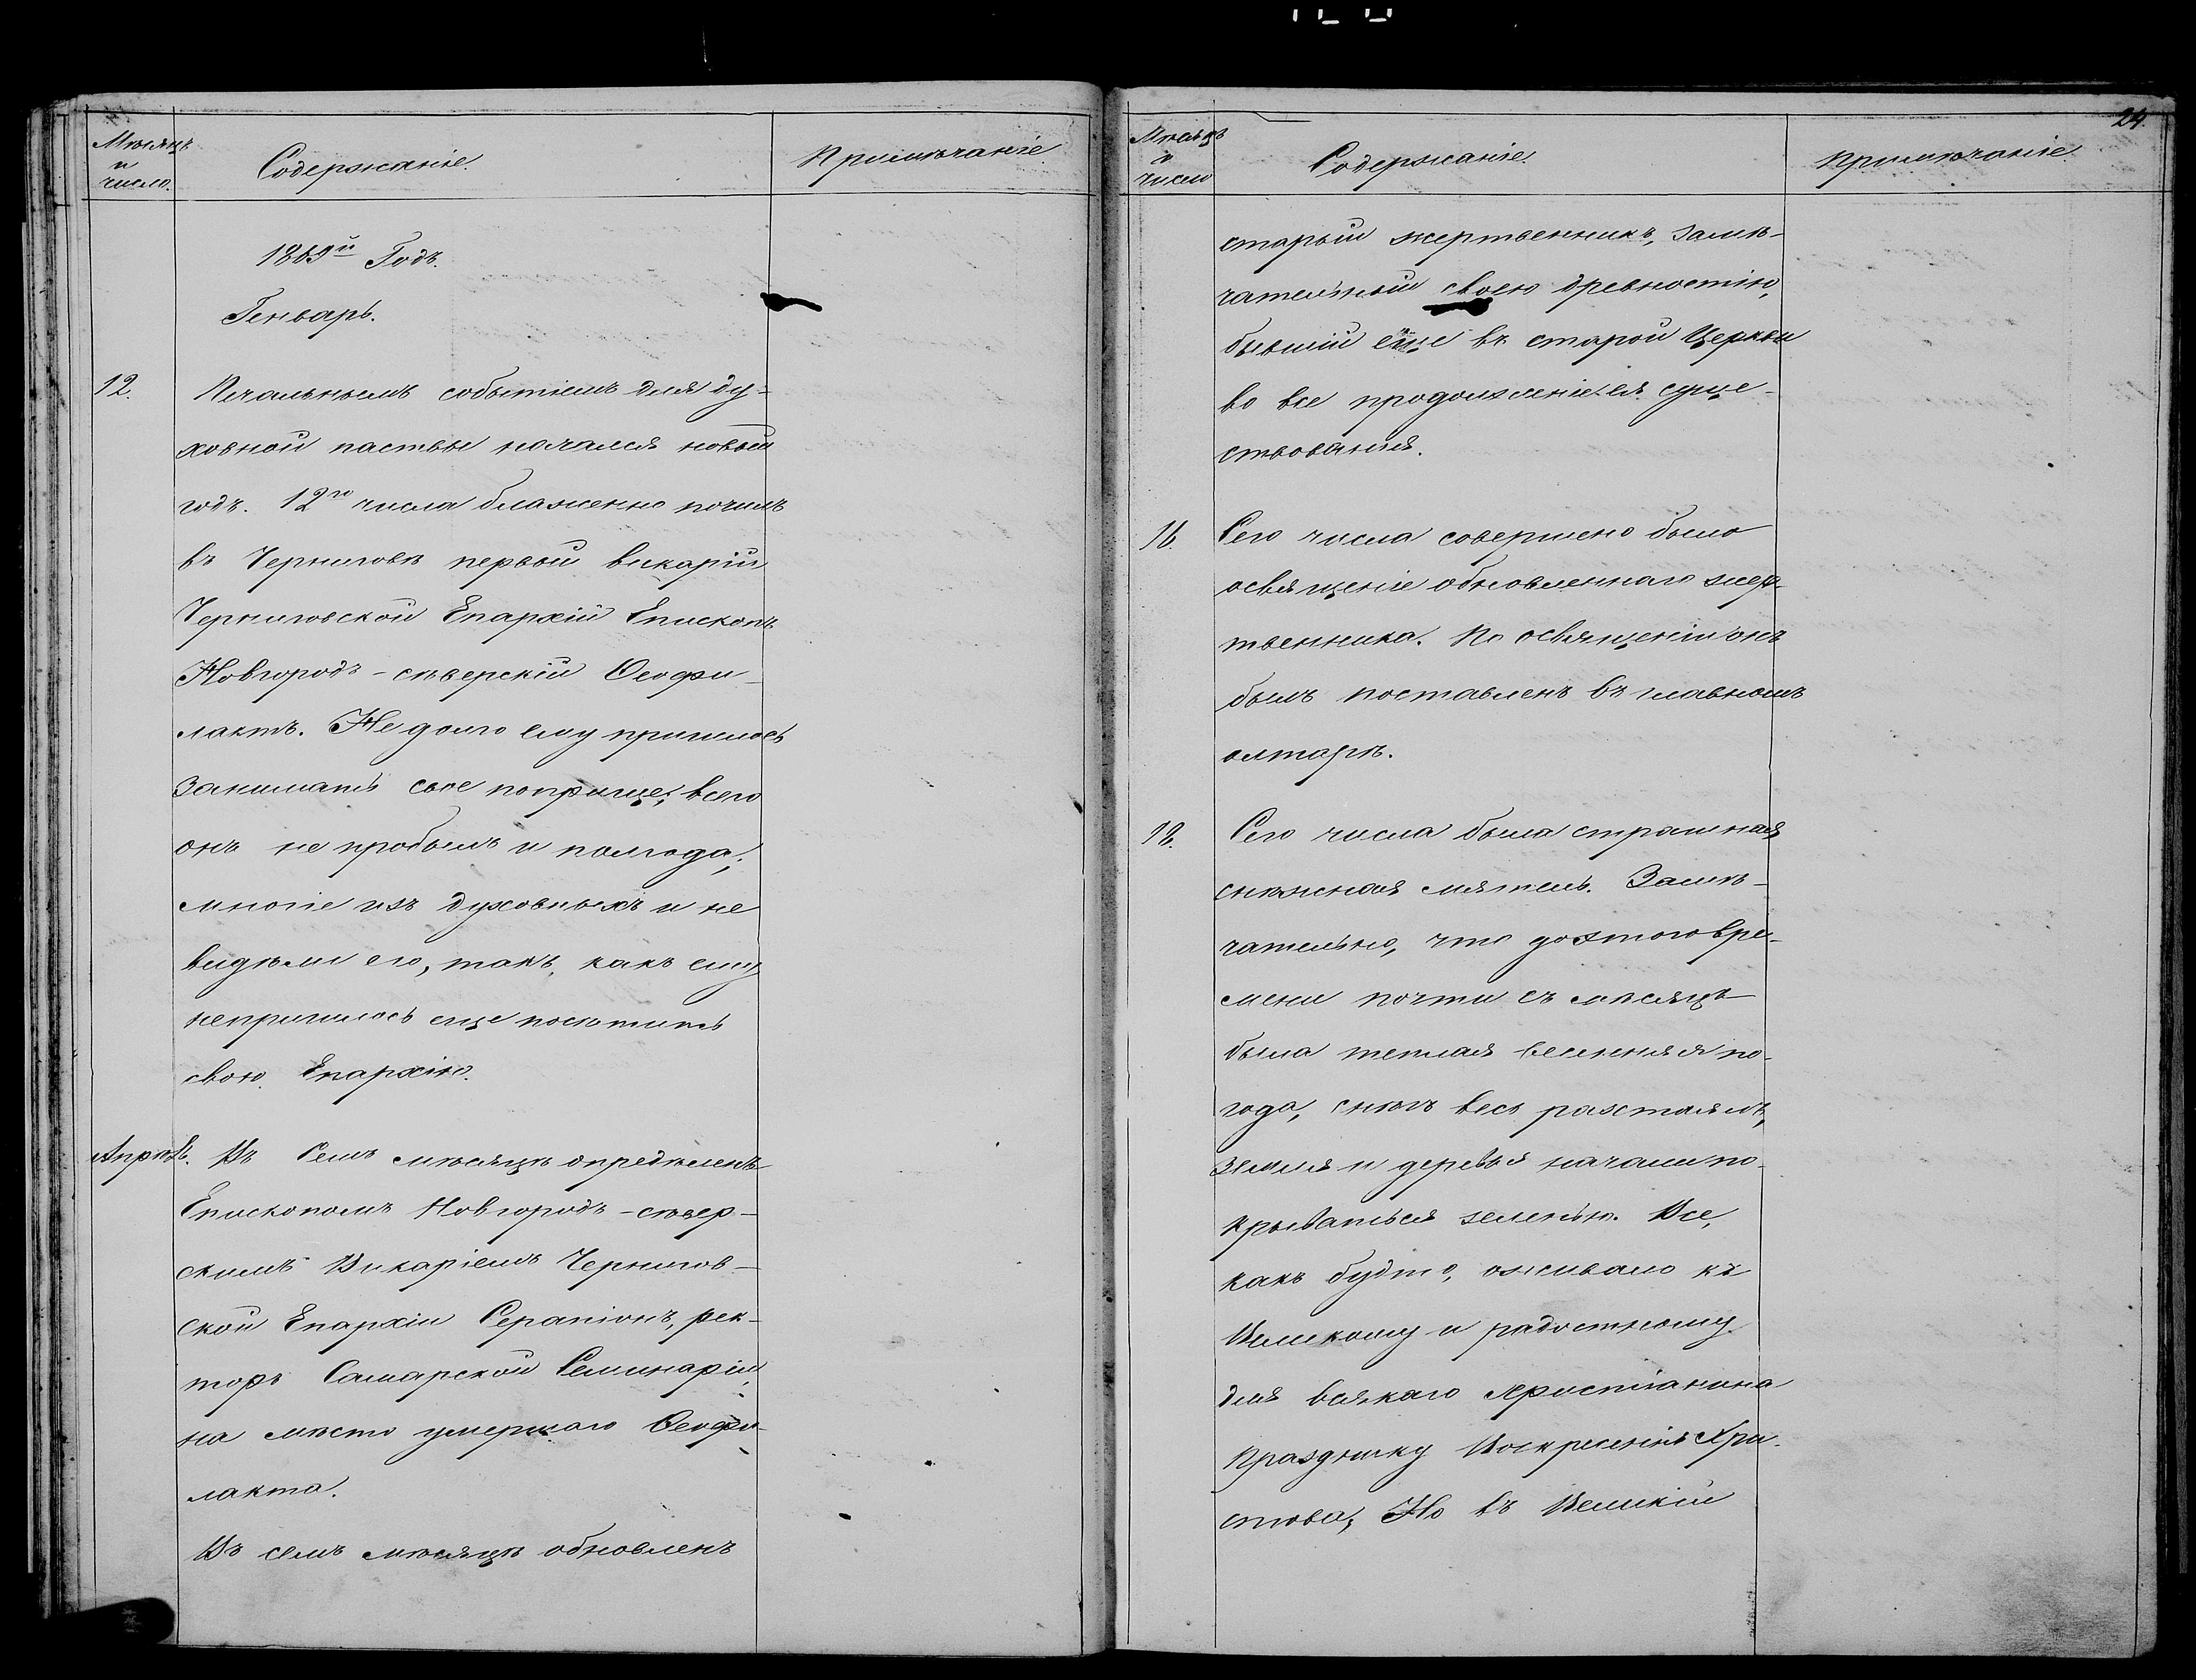 Мѣсяцъ
и
число.
Содержаніе.
Примѣчаніе.
1869й Годъ.
Генварь.
12.
Печальнымъ событіемъ для ду-
ховной паствы начался новый
годъ. 12го числа блаженно почилъ
въ Черниговѣ первый викарій
Черниговской Епархіи Епископъ
Новгородъ-сѣверскій Ѳеофи-
лактъ. Не долго ему пришлось
занимать свое поприще; всего
онъ не пробылъ и полгода;
многіе изъ духовныхъ и не
видѣли его, такъ какъ ему
непришлось еще посѣтить
свою Епархію.
Апрѣль.
Въ Семъ мѣсяцѣ опредѣленъ
Епископомъ Новгородъ-сѣвер-
скимъ Викаріемъ Чернигов-
ской Епархіи Серапіонъ, рек-
торъ Самарской Семинаріи,
на мѣсто умершаго Ѳеофи-
лакта.
Въ семъ мѣсяцѣ обновленъ
24.
Мѣсяцъ
и
число
Содержаніе.
Примѣчаніе.
старый жертвенникъ, замѣ-
чательный своею древностію,
бывшій еще въ старой Церкви
во все продолженіе ея суще-
ствованія.
16.
Сего числа совершено было
освященіе обновленнаго жер-
твенника. По освященіи онъ
былъ поставленъ въ главномъ
олтарѣ.
18.
Сего числа была страшная
снѣжная мятель. Замѣ-
чательно, что до этого вре-
мени почти съ мѣсяцъ
была теплая весенняя по-
года, снѣгъ весь разстаялъ,
земля и деревья начали по-
крываться зеленью. Все,
какъ будто, оживало къ
Великому и радостному
для всякаго христіанина
Празднику Воскресенія Хри-
стова; Но въ Великій